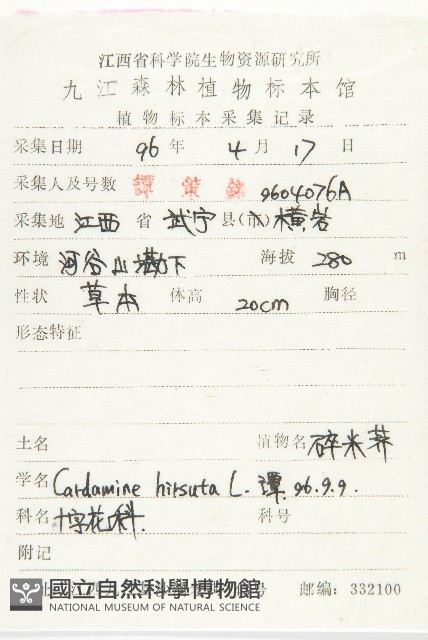 江西省科学院生物资源研究所
九江森林植物标本馆
植物标本采集记录
采集日期 96 年 4 月 17 日
采集人及号数 譚策銘 9604076A
采集地 江西 省 武宁 县(市) 横岩
环境 河谷山坳下 海拔 280 m
性状 草本 体高 20cm 胸径
形态特征
土名 植物名 碎米荠
学名 Cardamine hirsuta L. 譚. 96.9.9.
科名 十字花科. 科号
附记
號 邮编：332100
國立自然科學博物館
NATIONAL MUSEUM OF NATURAL SCIENCE